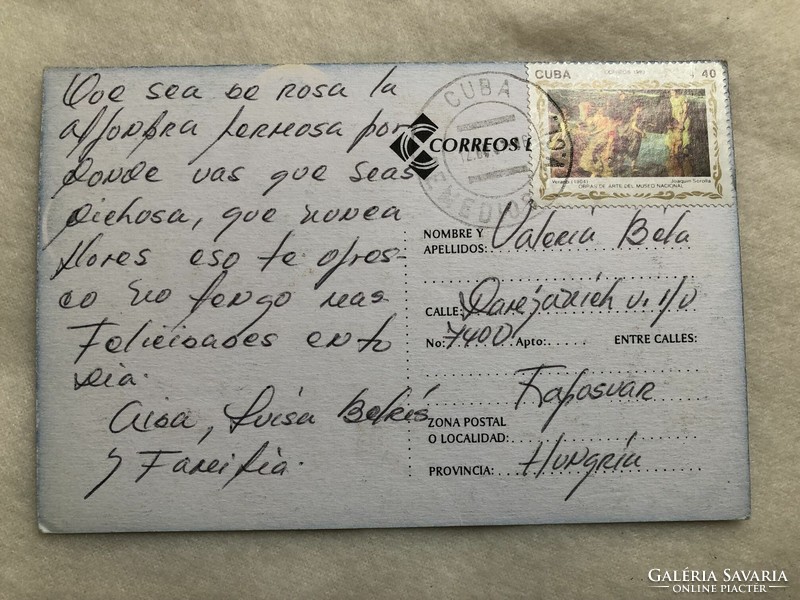 Que sea de rosa la
alfombra hermosa por
donde vas que seas
dichosa, que nunca
llores eso te ofres-
co no tengo mas
Felicidades en tu
dia.
Aida, Luisa Belkis
y Familia.
CUBA
REMEDIOS
CORREOS
CUBA
40
Verano (1904)
Joaquin Sorolla
OBRAS DE ARTE DEL MUSEO NACIONAL
NOMBRE Y
APELLIDOS: Valeria Béla
CALLE: u. 1/0
No: 7400 Apto: ENTRE CALLES:
Kaposvar
ZONA POSTAL
O LOCALIDAD:
PROVINCIA: Hungria
GALÉRIA SAVARIA
ONLINE PIACTÉR